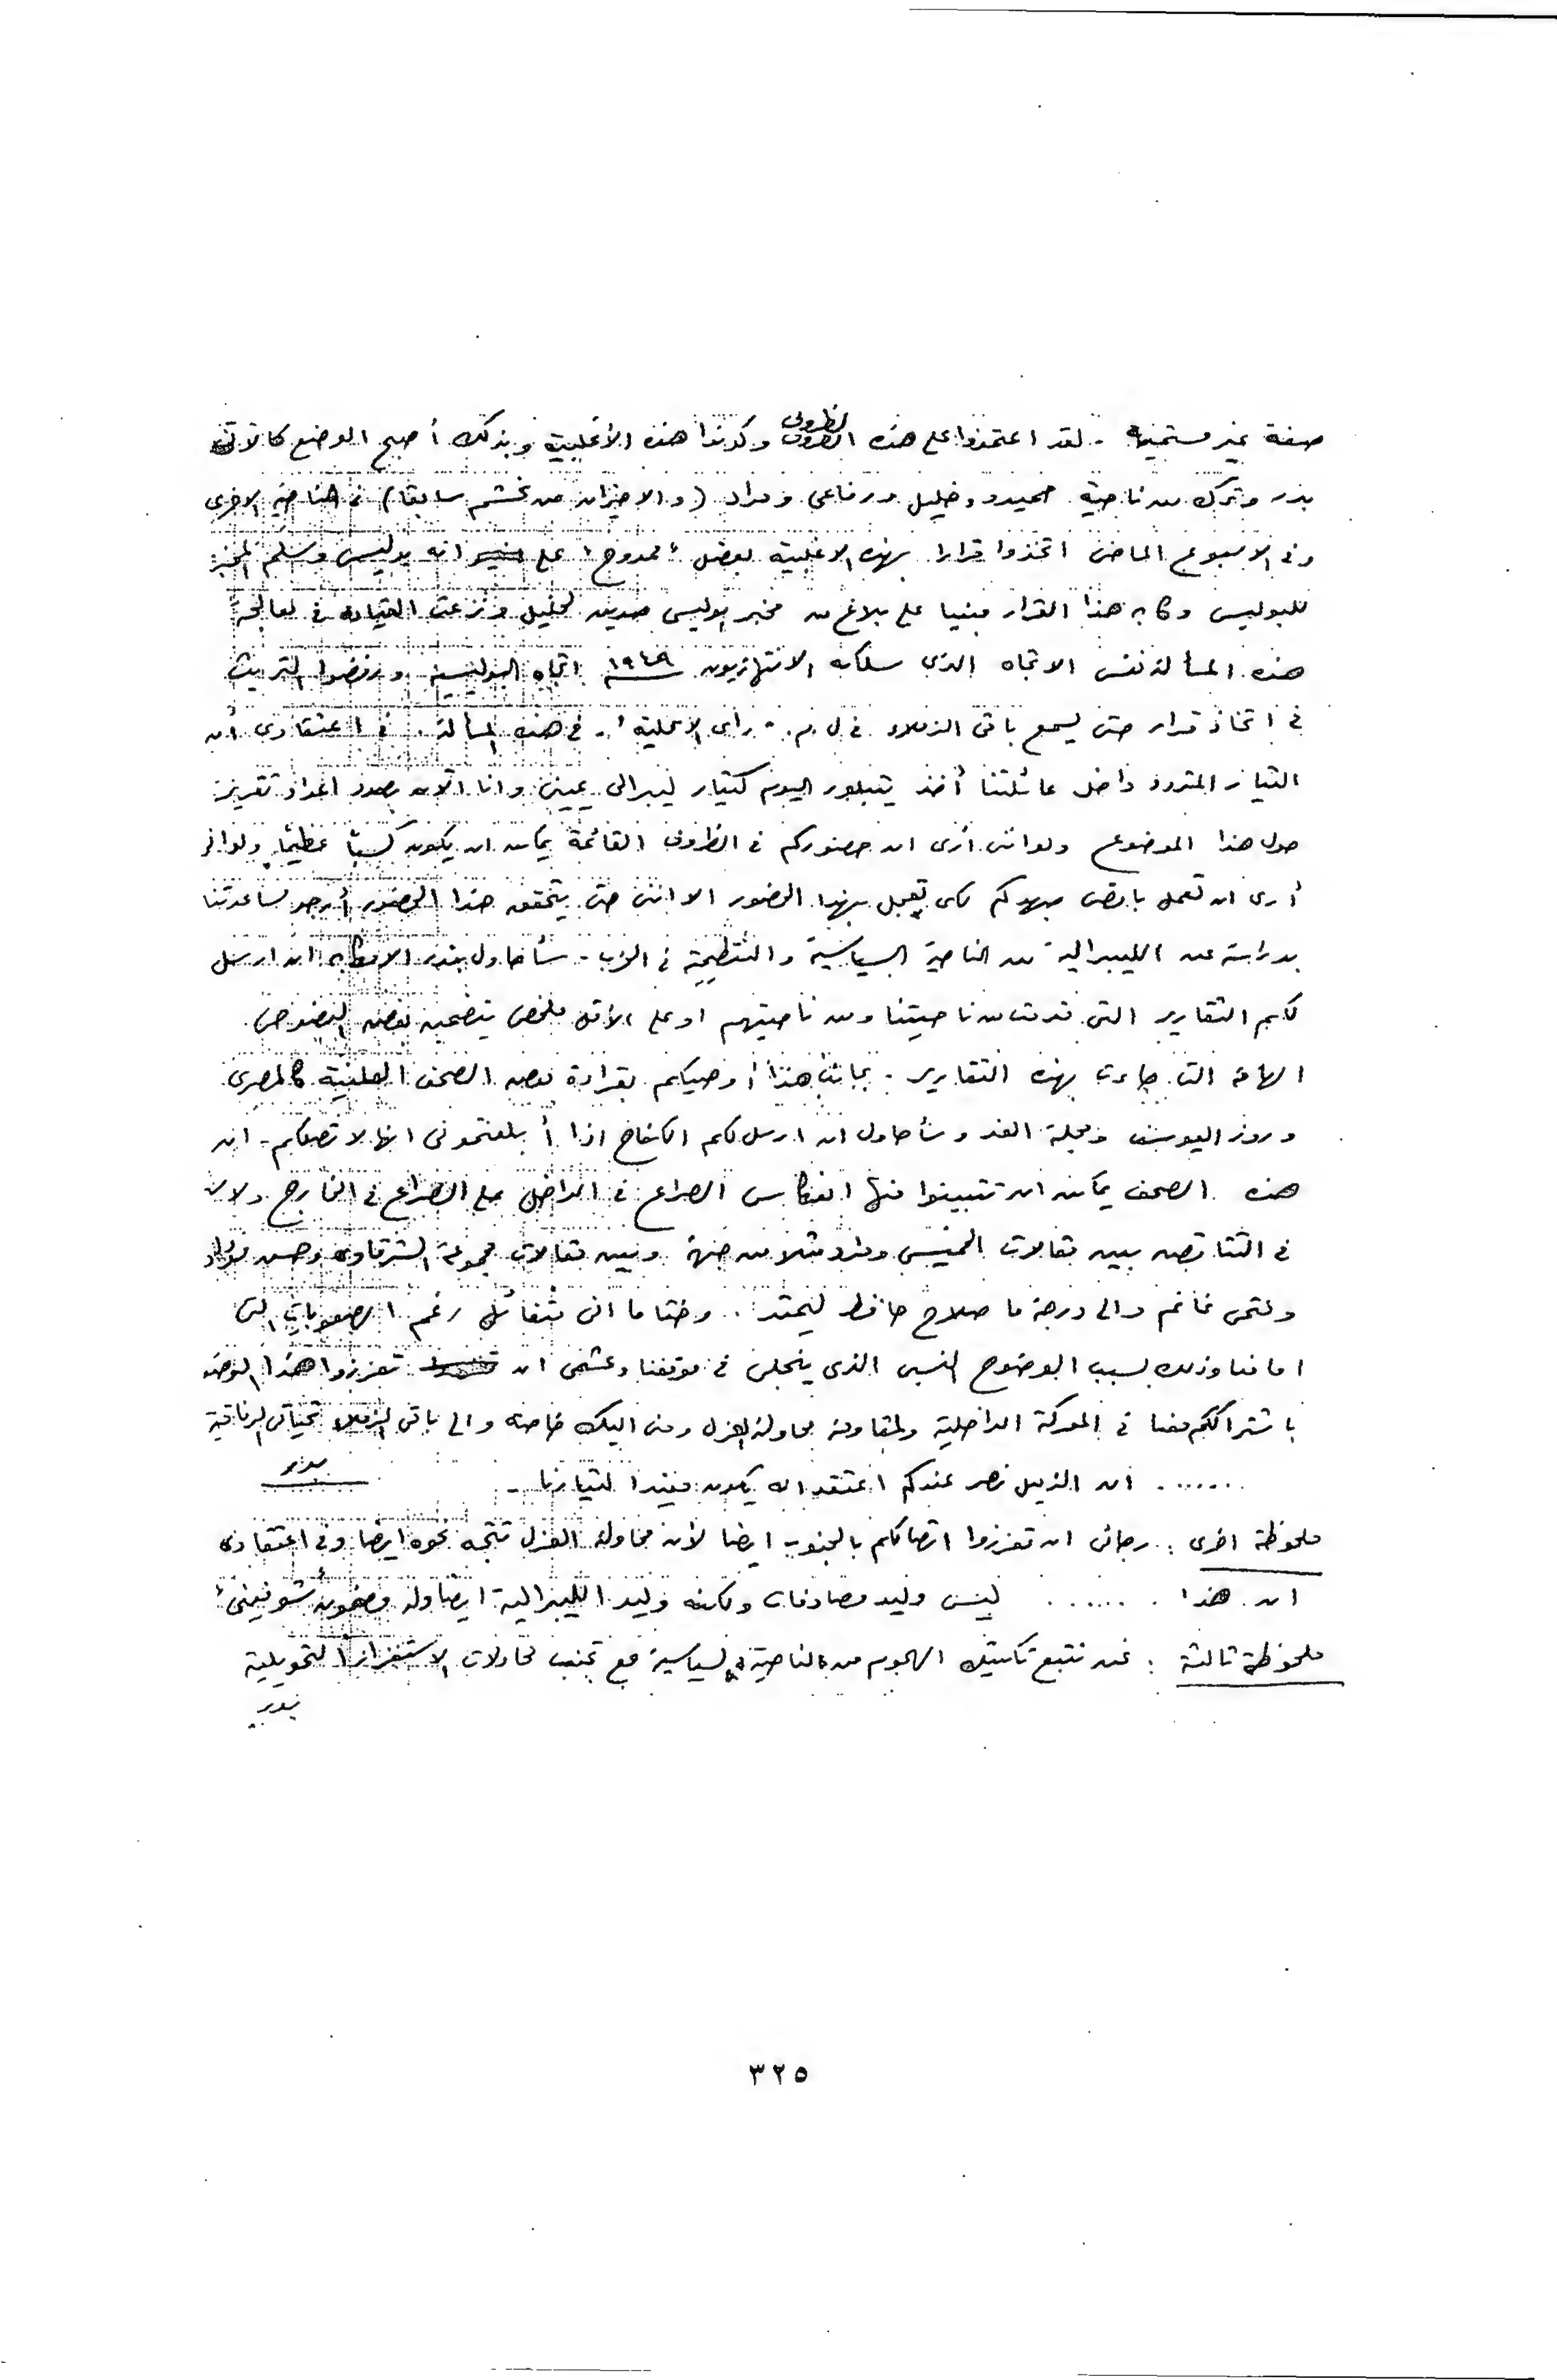 صفة غير مستحبة - لقد اعتمدوا على هذه الظروف وكونوا هذه الأغلبية وبذلك أصبح الوضع كالآتى
بدر وترك من ناحية حميدو وخليل ورفاعى ومراد (والاخيران من نحشم سابقا) فى الناحية الاخرى
وفى الاسبوع الماضى اتخذوا قرارا بهذه الاغلبية بفصل "ممدوح" على انه بوليس وسلم المخبر
للبوليس وكان هذا القرار مبنيا على بلاغ من مخبر بوليس صديق لخليل ونزعت القيادة فى معالجة
هذه المسألة نفس الاتجاه الذى سلكه الانتهازيون ١٩٤٩ اتجاه البوليسية ورفضوا التريث
فى اتخاذ قرار حتى يسمع باقى الزملاء فى ل.م. رأى الاغلبية فى هذه المسألة. فى اعتقادى أن
التيار المتردد داخل عائلتنا أخذ يتبلور اليوم كتيار ليبرالى يمينى وانا الآن بصدد اعداد تقرير
حول هذا الموضوع ولو اننى أرى ان حضوركم فى الظروف القائمة يمكن ان يكون كسبا عظيما ولو انى
أرى ان تعمل باقصى جهدكم لكى تعجل بهذا الحضور الا اننى حتى يتحقق هذا الحضور أرجو مساعدتنا
بدراسة عن الليبرالية من الناحية السياسية والتنظيمية فى الحزب - سأحاول بقدر الامكان ان ارسل
لكم التقارير التى قدمت من ناحيتنا ومن ناحيتهم او على الأقل ملخص يتضمن بعض النصوص
الهامة التى جاءت بهذه التقارير - بجانب هذا أوصيكم بقراءة بعض الصحف العلنية كالمصرى
وروز اليوسف ومجلة الغد وسأحاول ان ارسل لكم الكفاح اذا أبلغتمونى انها لا تصلكم - ان
هذه الصحف يمكن ان تتبينوا منها انعكاس الصراع فى الداخل على الصراع فى الخارج ولا
فى التناقض بين مقالات الخميسى مثلا من جهة وبين مقالات مجموعة الشرقاوى وحسن فؤاد
وفتحى غانم والى درجة ما صلاح حافظ . وختاما انى متفائل رغم الصعوبات التى
امامنا وذلك بسبب الوضوح النسبى الذى ينجلى فى موقفنا وعشمى ان تعززوا هذا الوضع
باشتراككم معنا فى المعركة الداخلية ولمقاومة محاولة العزل ومنى اليك خاصة والى باقى الزملاء تحياتى الرفاقية
....... ان الزميل نصر عندكم اعتقد انه يكون مفيدا لتيارنا -
بدر
ملحوظة اخرى : رجائى ان تعززوا اتصالكم بالجنوب ايضا لأن محاولة العزل تتجه نحوه ايضا وفى اعتقادى
ان هذا ...... ليس وليد مصادفات ولكنه وليد الليبرالية ايضا وله مضمون شوفينى
ملحوظة ثالثة : نحن نتبع تاكتيك الهجوم من الناحية السياسية مع تجنب محاولات الاستفزاز التحويلية
بدر
٣٢٥